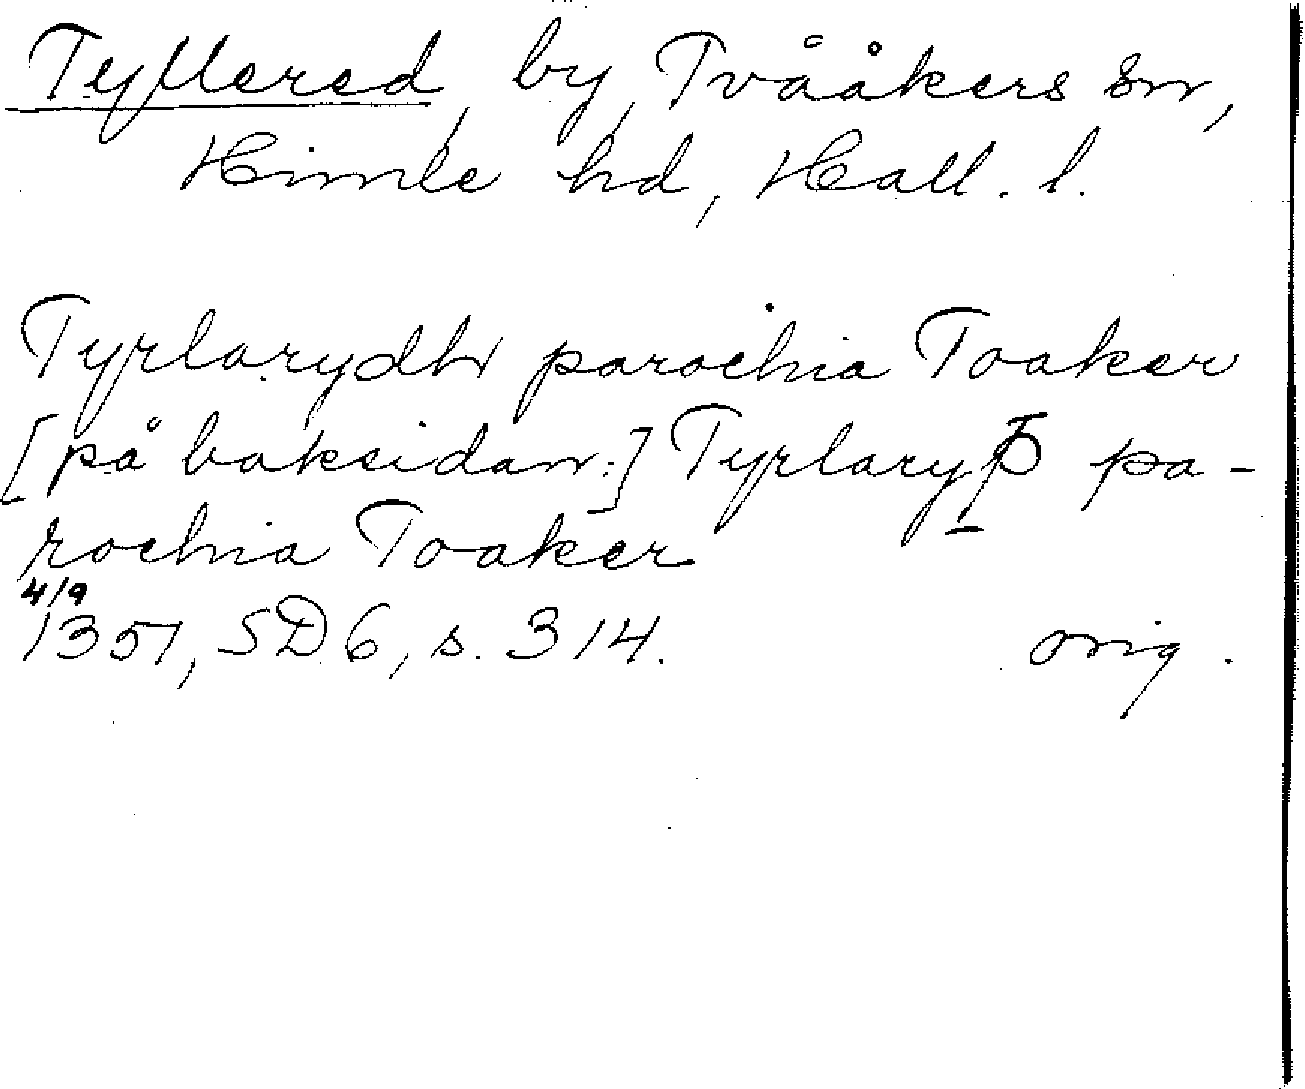 Tyllered, by, Tvååkers sn,
Himle hd, Hall. l.
Tyrlarydh parochia Toaker
[på baksidan:] Tyrlaryþ pa-
rochia Toaker
4/9
1351, SD 6, s. 314. orig.